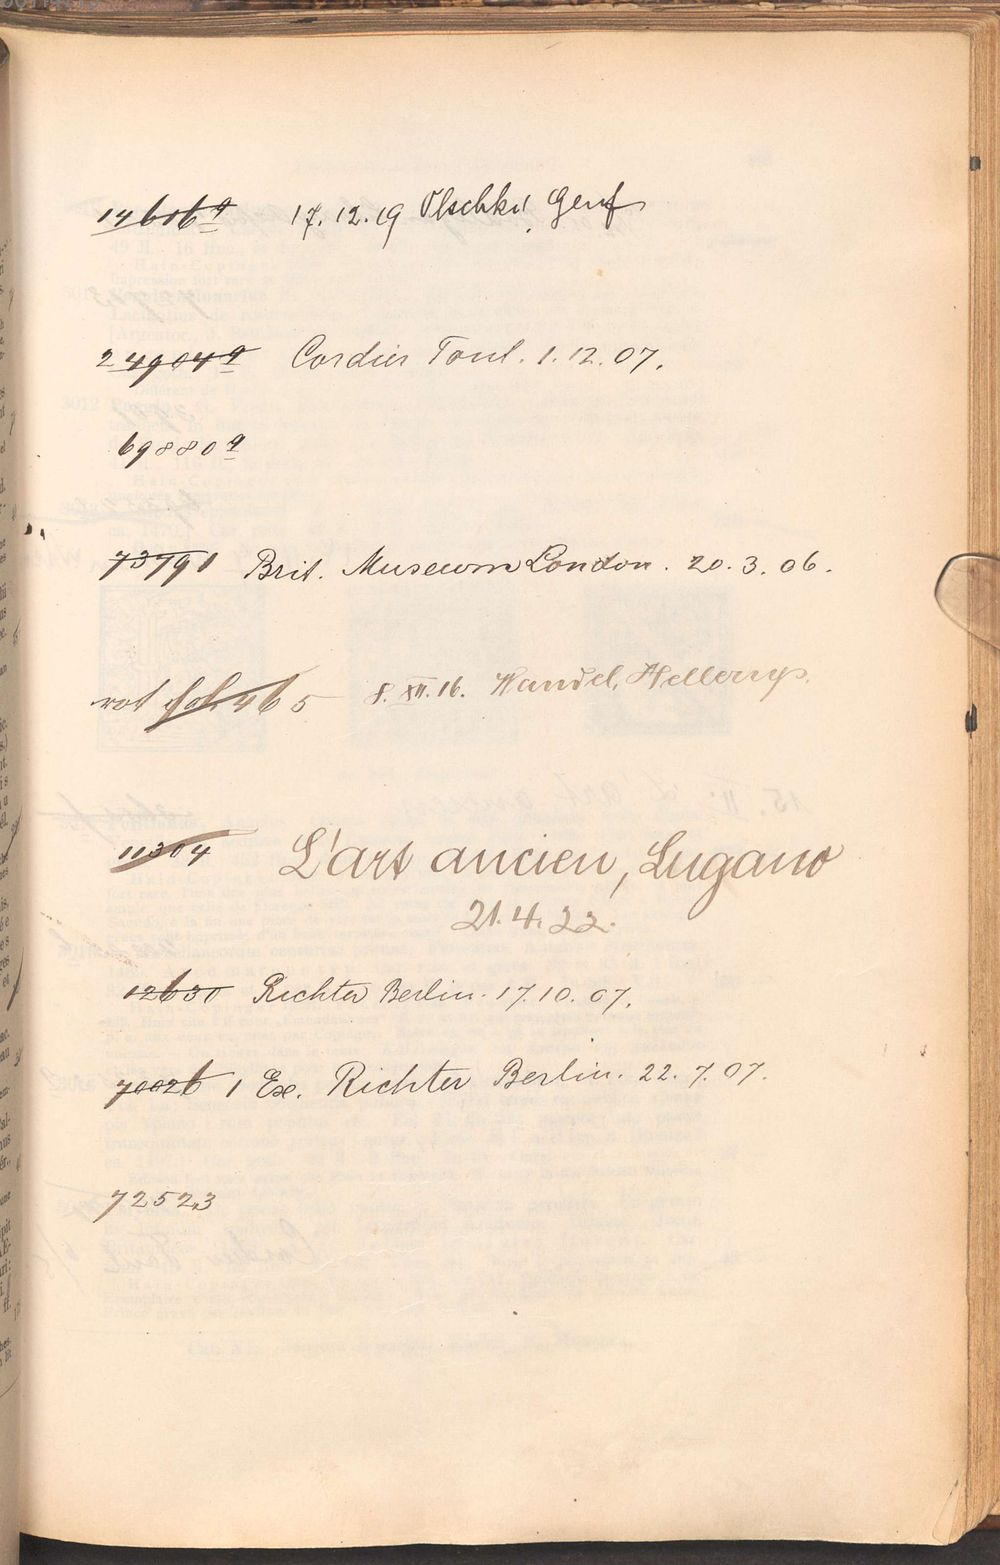 14606a 17.12.19 Olschki, Genf
24904a Cordier Toul. 1.12.07.
69880a
73791 Brit. Museum London. 20.3.06.
rot 465 8.XII.16. Wandel,
11304 L'art ancien, Lugano
21.4.22.
12630 Richter Berlin. 17.10.07.
70026 1 Ex. Richter Berlin. 22.7.07.
72523